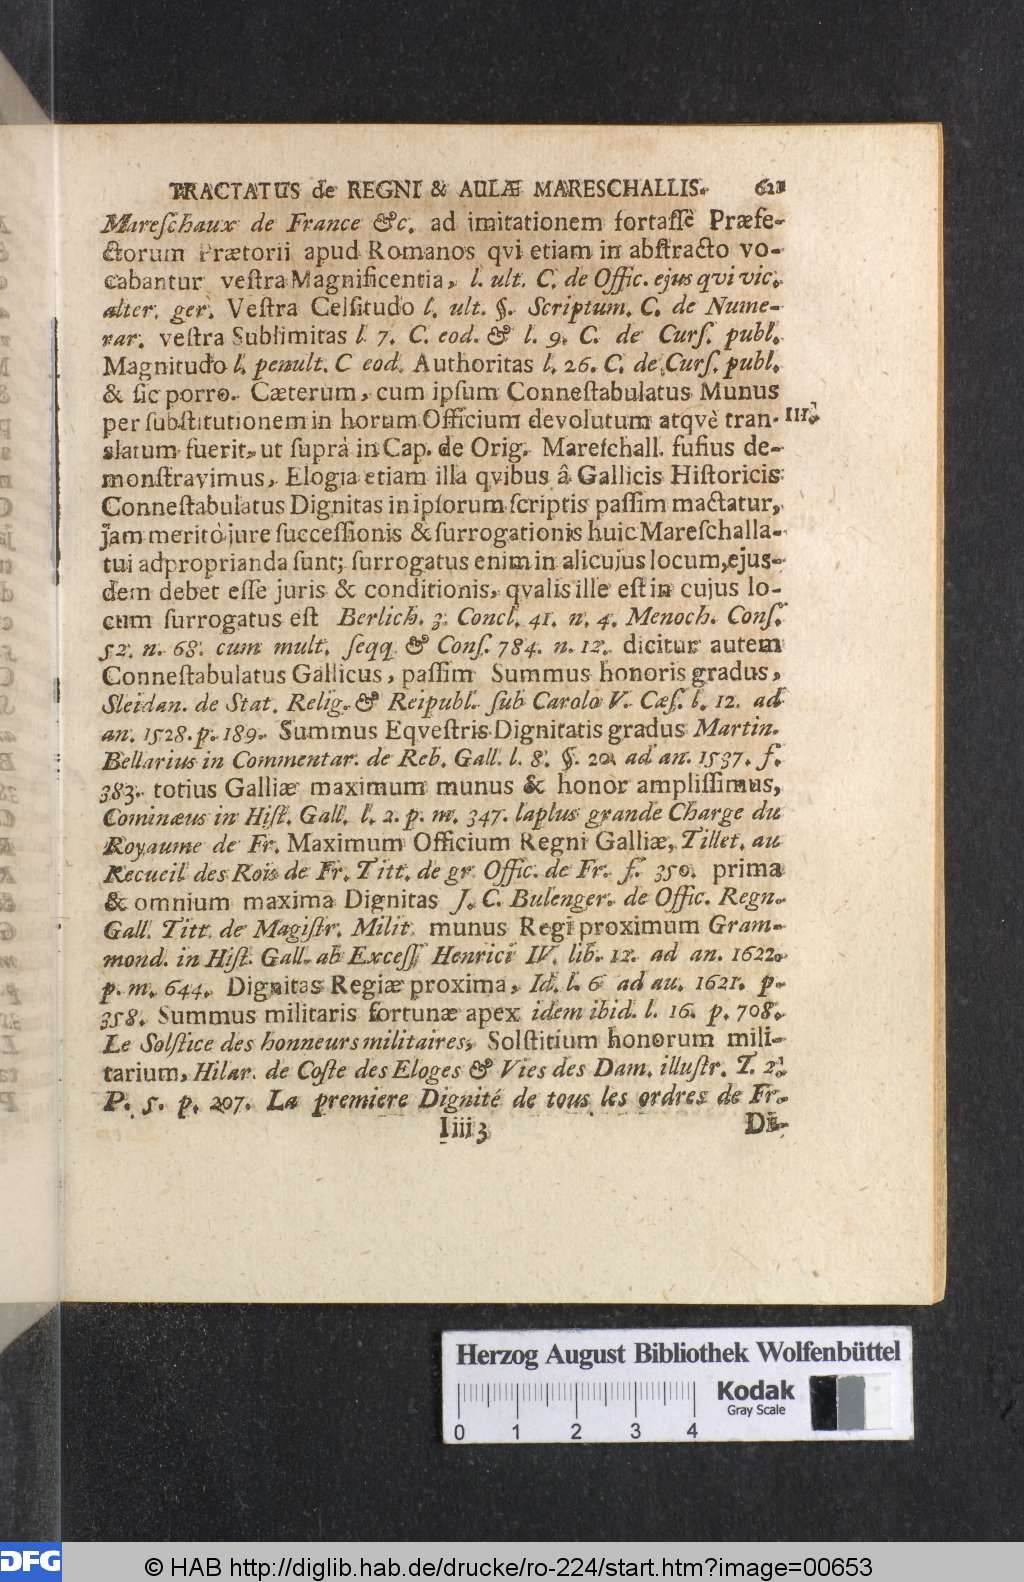 TRACTATUS de REGNI & AULÆ MARESCHALLIS. 621
Mareſchaux de France &c. ad imitationem fortaſſè Præfe-
ctorum Prætorii apud Romanos qvi etiam in abſtracto vo-
cabantur veſtra Magnificentia, l. ult. C. de Offic. ejus qvi vic.
alter. ger. Veſtra Celſitudo l. ult. §. Scriptum. C. de Nume-
rar. veſtra Sublimitas l 7. C. eod. & l. 9. C. de Curſ. publ.
Magnitudo l. penult. C eod. Authoritas l. 26. C. de Curſ. publ.
& ſic porro. Cæterum, cum ipſum Conneſtabulatus Munus
per ſubſtitutionem in horum Officium devolutum atqvè tran- III.
slatum fuerit, ut ſuprà in Cap. de Orig. Mareſchall. fuſius de-
monſtravimus, Elogia etiam illa qvibus â Gallicis Hiſtoricis
Conneſtabulatus Dignitas in ipſorum ſcriptis paſſim mactatur,
jam meritò jure ſucceſſionis & ſurrogationis huic Mareſchalla-
tui adproprianda ſunt; ſurrogatus enim in alicujus locum, ejus-
dem debet eſſe juris & conditionis, qvalis ille eſt in cujus lo-
cum ſurrogatus eſt Berlich. 3. Concl. 41. n. 4. Menoch. Conſ.
52. n. 68. cum mult. ſeqq. & Conſ. 784. n. 12. dicitur autem
Conneſtabulatus Gallicus, paſſim Summus honoris gradus,
Sleidan. de Stat. Relig. & Reipubl. ſub Carolo V. Cæſ. l. 12. ad
an. 1528. p. 189. Summus Eqveſtris Dignitatis gradus Martin.
Bellarius in Commentar. de Reb. Gall. l. 8. §. 20. ad an. 1537. f.
383. totius Galliæ maximum munus & honor ampliſſimus,
Cominæus in Hiſt. Gall. l. 2. p. m. 347. laplus grande Charge du
Royaume de Fr. Maximum Officium Regni Galliæ, Tillet. au
Recueil des Rois de Fr. Titt. de gr. Offic. de Fr. f. 350. prima
& omnium maxima Dignitas J. C. Bulenger. de Offic. Regn.
Gall. Titt. de Magiſtr. Milit. munus Regi proximum Gram-
mond. in Hiſt. Gall. ab Exceſſ. Henrici IV. lib. 12. ad an. 1622.
p. m. 644. Dignitas Regiæ proxima, Id. l. 6 ad au. 1621. p.
358. Summus militaris fortunæ apex idem ibid. l. 16. p. 708.
Le Solſtice des honneurs militaires, Solſtitium honorum mili-
tarium, Hilar. de Coſte des Eloges & Vies des Dam. illuſtr. T. 2.
P. 5. p. 207. La premiere Dignité de tous les ordres de Fr.
Iiii 3 Di-
Herzog August Bibliothek Wolfenbüttel
Kodak
Gray Scale
0 1 2 3 4
DFG
© HAB http://diglib.hab.de/drucke/ro-224/start.htm?image=00653